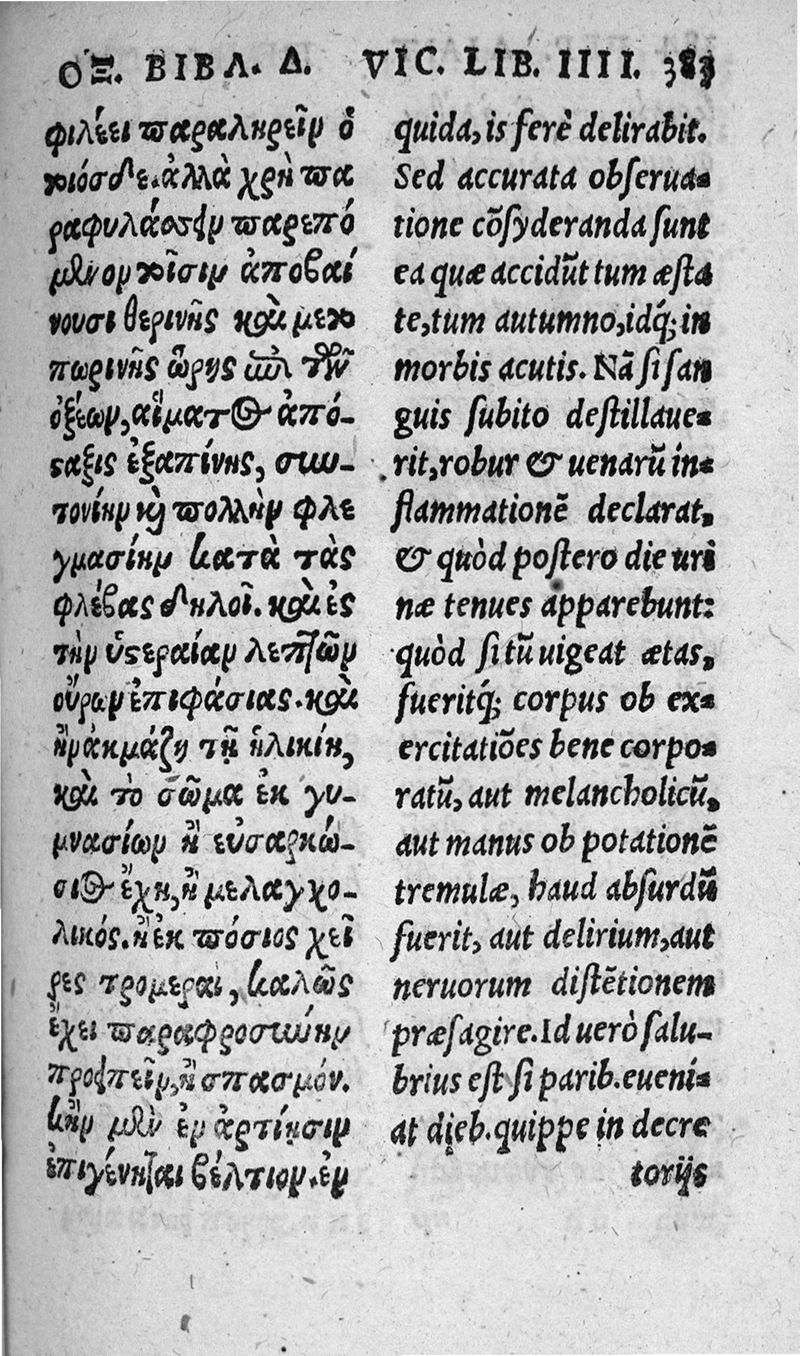 ΟΞ. ΒΙΒΛ. Δ. VIC. LIB. IIII. 383
φιλέει παραληρεῖν ὁ
τοιόσδε. ἀλλὰ χρὴ πα
ραφυλάσσειν παρεπό
μενον τοῖσιν ἀποβαί
νουσι θερινῆς καὶ μετο
πωρινῆς ὥρης ἐπὶ τῶν
ὀξέων, αἵματος ἀπό-
σταξις ἐξαπίνης, συν-
τονίην καὶ πολλὴν φλε
γμασίην κατὰ τὰς
φλέβας δηλοῖ. καὶ ἐς
τὴν ὑστεραίαν λεπτῶν
οὔρων ἐπιφάσιας. καὶ
ἢν ἀκμάζῃ τῇ ἡλικίῃ,
καὶ τὸ σῶμα ἐκ γυ-
μνασίων ἢ εὐσαρκώ-
σιος ἔχῃ, ἢ μελαγχο-
λικός. ἢ ἐκ πόσιος χεῖ
ρες τρομεραὶ, καλῶς
ἔχει παραφροσύνην
προειπεῖν, ἢ σπασμόν.
κἢν μὲν ἐν ἀρτίῃσιν
ἐπιγένηται βέλτιον. ἐν
quida, is ferè delirabit.
Sed accurata obserua-
tione cōsyderanda sunt
ea quæ accidūt tum æsta
te, tum autumno, idq́; in
morbis acutis. Nā si san
guis subito destillaue-
rit, robur & uenarū in-
flammationē declarat,
& quòd postero die uri
næ tenues apparebunt:
quòd si tū uigeat ætas,
fueritq́; corpus ob ex-
ercitatiōes bene corpo-
ratū, aut melancholicū,
aut manus ob potationē
tremulæ, haud absurdū
fuerit, aut delirium, aut
neruorum distētionem
præsagire. Id uerò salu-
brius est si parib. eueni-
at dieb. quippe in decre
torijs